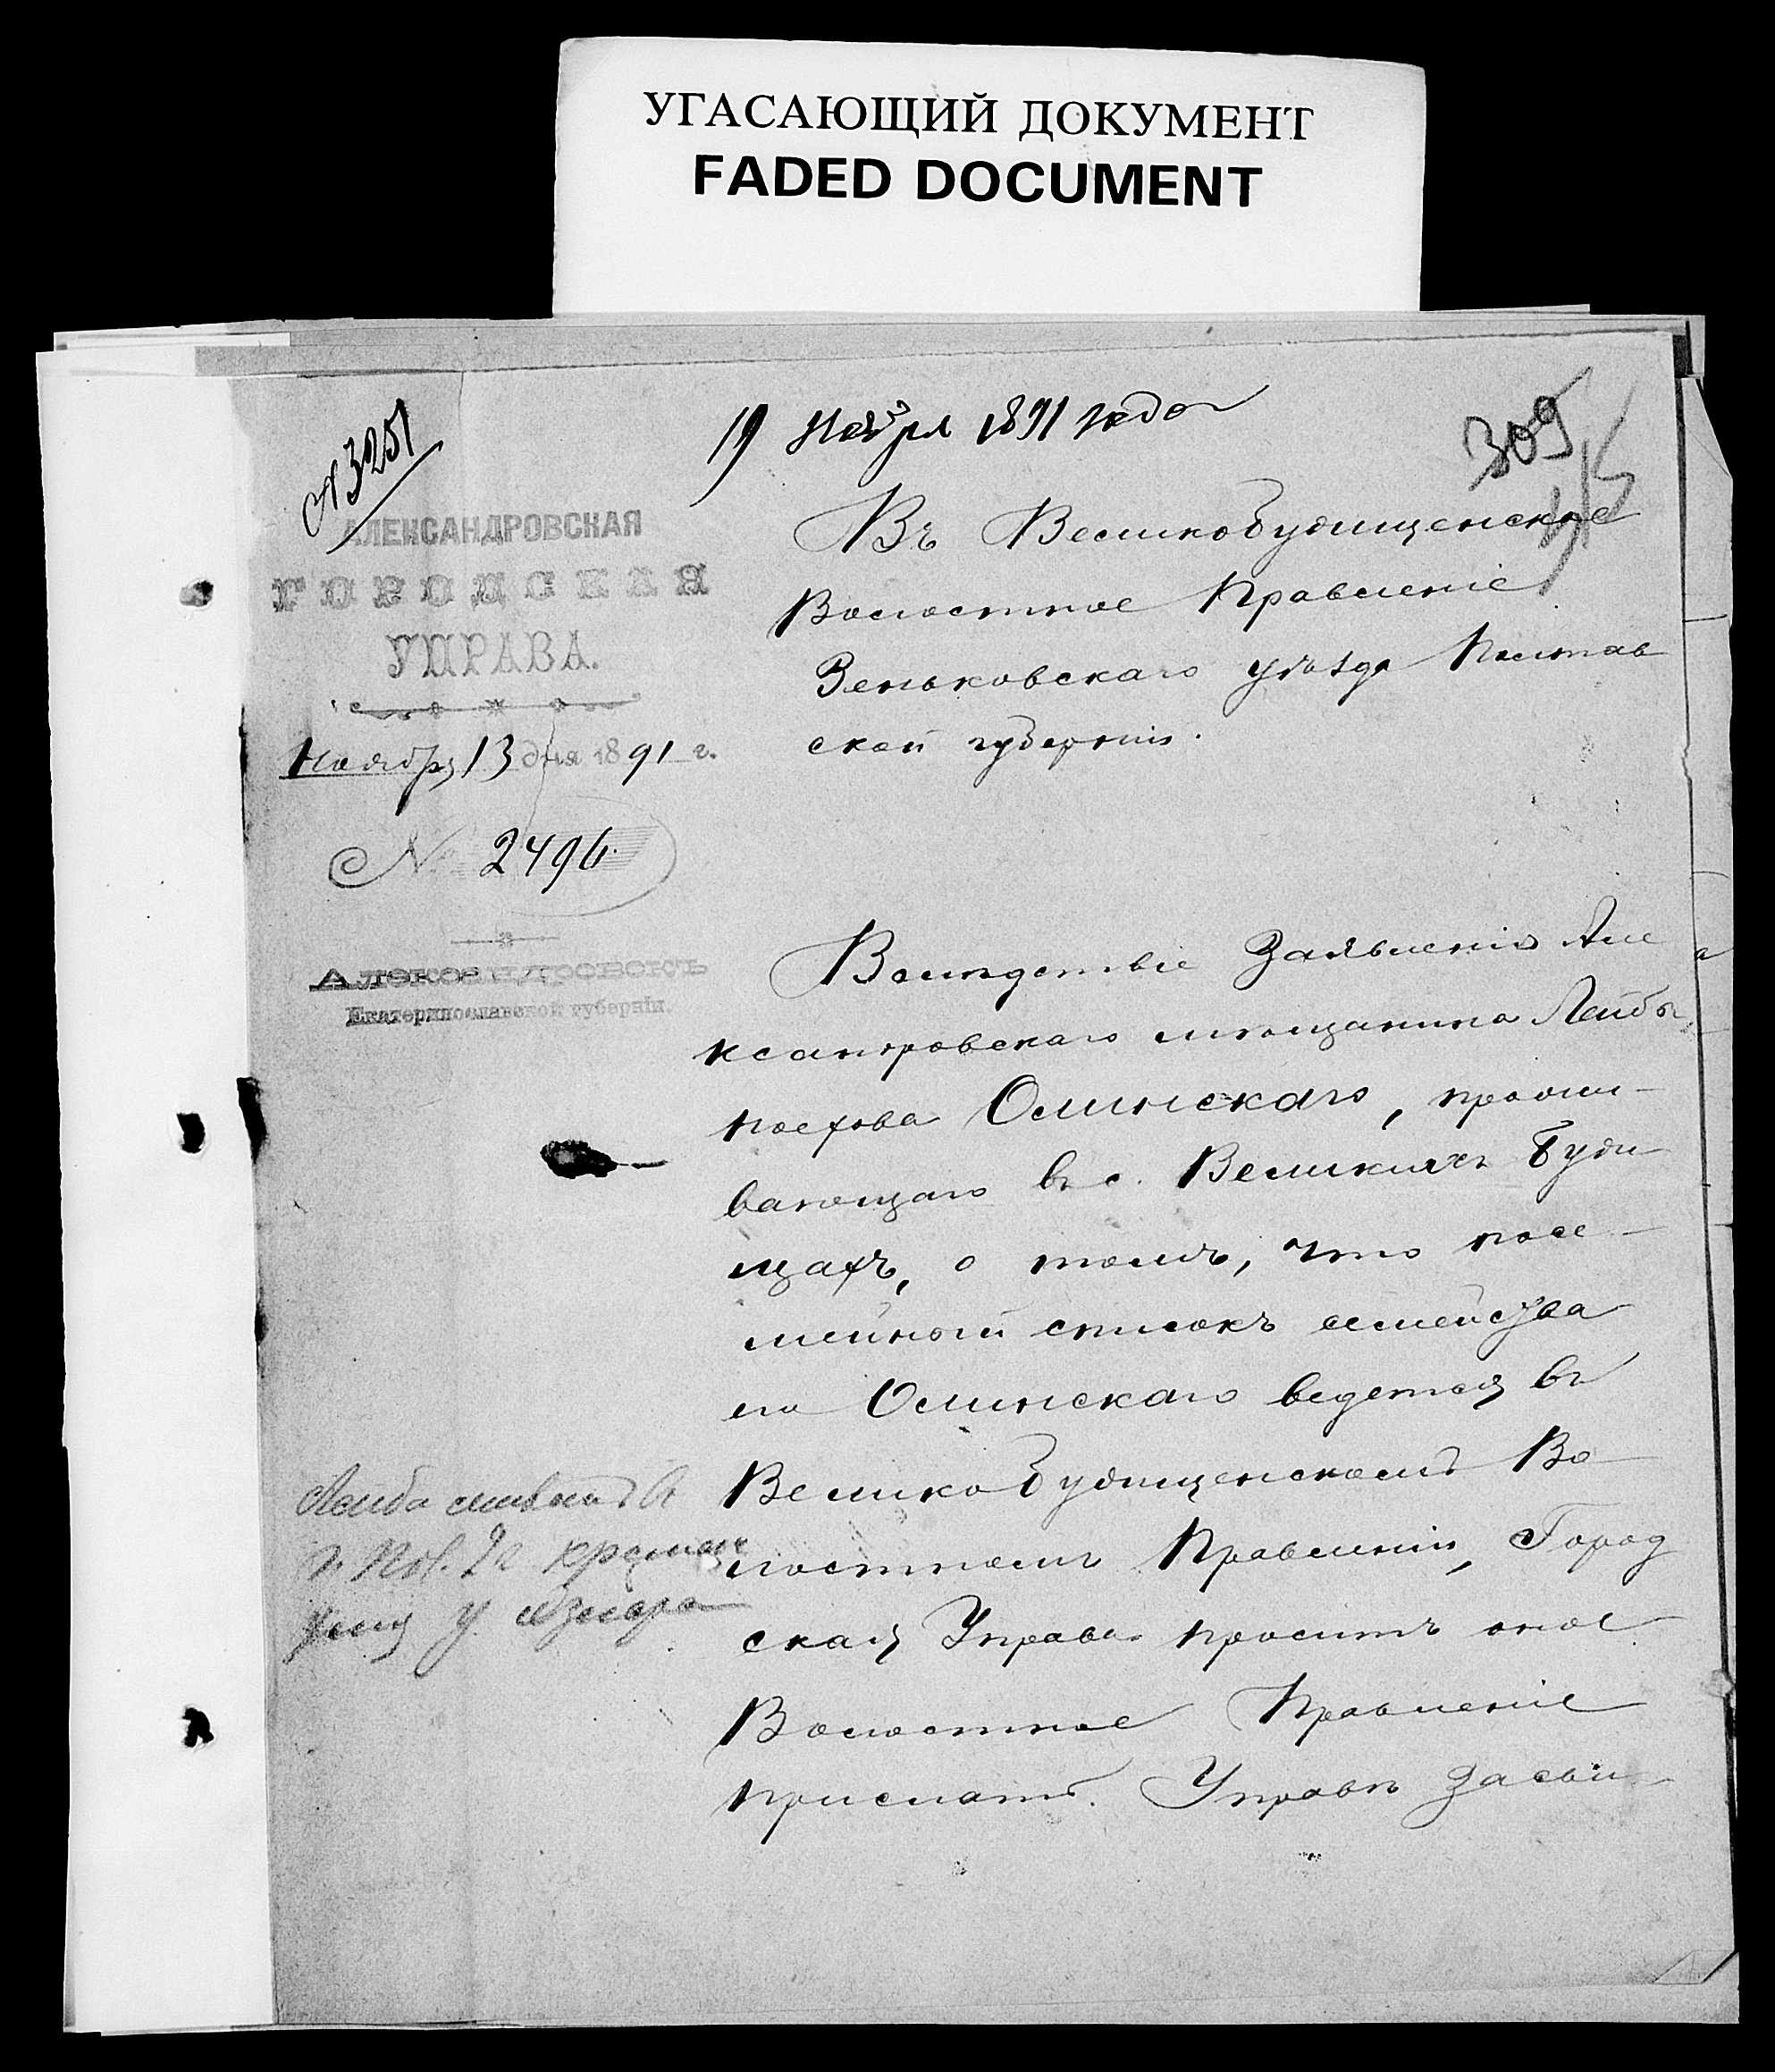 УГАСАЮЩИЙ ДОКУМЕНТ
FADED DOCUMENT
№ 3251
19 Ноября 1891 года
309
АЛЕКСАНДРОВСКАЯ
ГОРОДСКАЯ
УПРАВА.
Ноября 13 дня 1891 г.
№ 2496.
Александровскъ
Екатеринославской губерніи.
Въ Великобудищенское
Волостное Правленіе
Зеньковскаго уѣзда Полтав
ской губерніи.
Вслѣдствіе Заявленія Але
ксандровскаго мѣщанина Лейбы
Осинскаго, прожи-
вающаго въ с. Великихъ Буди
щахъ, о томъ, что посе-
мейный списокъ семейства
его Осинскаго ведется въ
Великобудищенскомъ Во-
лостномъ Правленіи, Город
ская Управа проситъ оное
Волостное Правленіе
прислать Управѣ засви-
Лейба